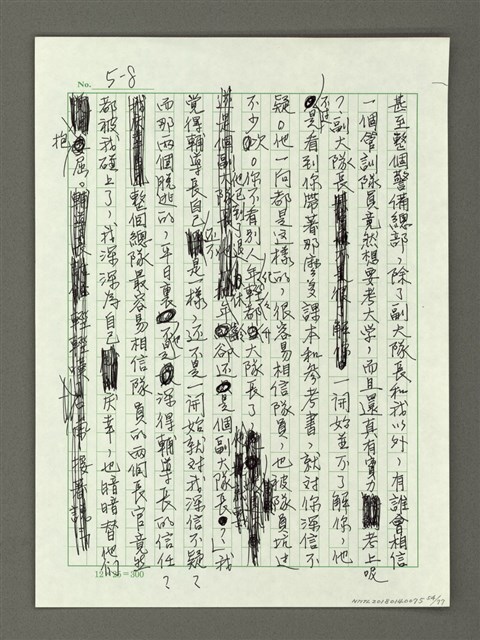 No.
5-8
甚至整個警備總部，除了副大隊長和我以外，有誰會相信
一個管訓隊員竟然想要考大學，而且還真有實力考上呢
？副大隊長一開始並不了解你，他
只是看到你帶著那麼多課本和參考書，就對你深信不
疑。他一向都是這樣的，很容易相信隊員，也被隊員坑過
不少次。你不看別人年輕都大隊長了
他已到
還是個副大隊長。」我
覺得輔導長自己還不是一樣，還不是一開始就對我深信不疑？
而那兩個脫逃的，平日裏不也深得輔導長的信任？
整個總隊最容易相信隊員的兩個長官竟然
都被我碰上了，我深深為自己慶幸，也暗暗替他們
抱屈。
12×25=300
NMTL20180140075 04/77